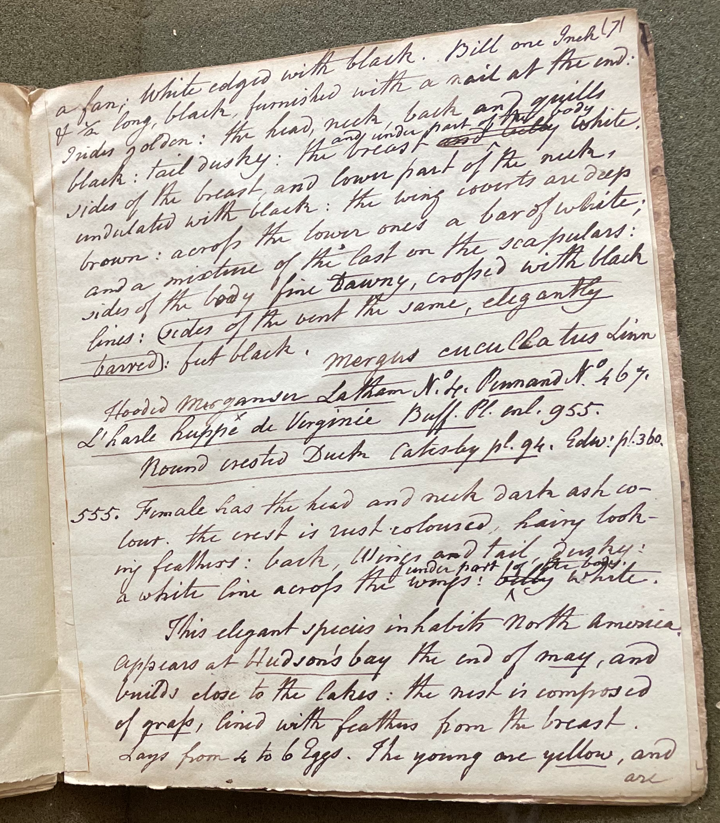 (7)
a fan; White edged with black. Bill one Inch
& ½ long, black, furnished with a nail at the end:
Irides golden: the head, neck, back and quills
black: tail dusky: the breast and under part of the body white.
sides of the breast, and lower part of the neck,
undulated with black: the wing coverts are deep
brown: across the lower ones a bar of white;
and a mixture of the last on the scapulars:
sides of the body fine Tawny, crossed with black
lines: (sides of the vent the same, elegantly
barred): feet black. Mergus cucullatus Linn
Hooded Merganser Latham No. 4. Pennand No. 467.
L'harle huppé de Virginie Buff. Pl. enl. 955.
Round crested Duck Catesby pl. 94. Edw: pl. 360.
555. Female has the head and neck dark ash co-
lour. the crest is rust coloured, hairy look-
ing feathers: back, Wings and tail, dusky:
a white line across the wings: under part of the body white.
This elegant species inhabits North America.
appears at Hudson's bay the end of may, and
builds close to the lakes: the nest is composed
of grass, lined with feathers from the breast.
Lays from 4 to 6 Eggs. The young are yellow, and
are